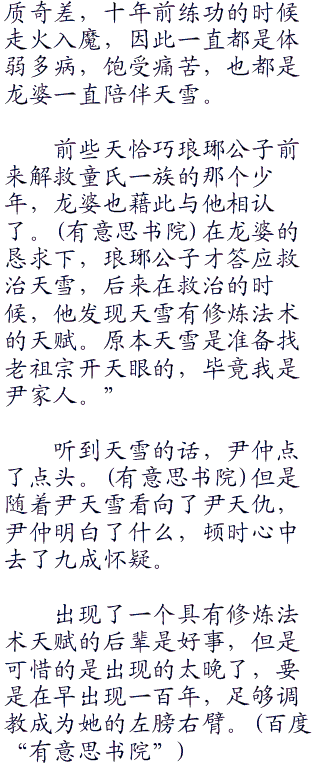 质奇差，十年前练功的时候
走火入魔，因此一直都是体
弱多病，饱受痛苦，也都是
龙婆一直陪伴天雪。
前些天恰巧琅琊公子前
来解救童氏一族的那个少
年，龙婆也藉此与他相认
了。(有意思书院)在龙婆的
恳求下，琅琊公子才答应救
治天雪，后来在救治的时
候，他发现天雪有修炼法术
的天赋。原本天雪是准备找
老祖宗开天眼的，毕竟我是
尹家人。”
听到天雪的话，尹仲点
了点头。(有意思书院)但是
随着尹天雪看向了尹天仇，
尹仲明白了什么，顿时心中
去了九成怀疑。
出现了一个具有修炼法
术天赋的后辈是好事，但是
可惜的是出现的太晚了，要
是在早出现一百年，足够调
教成为她的左膀右臂。(百度
“有意思书院”)